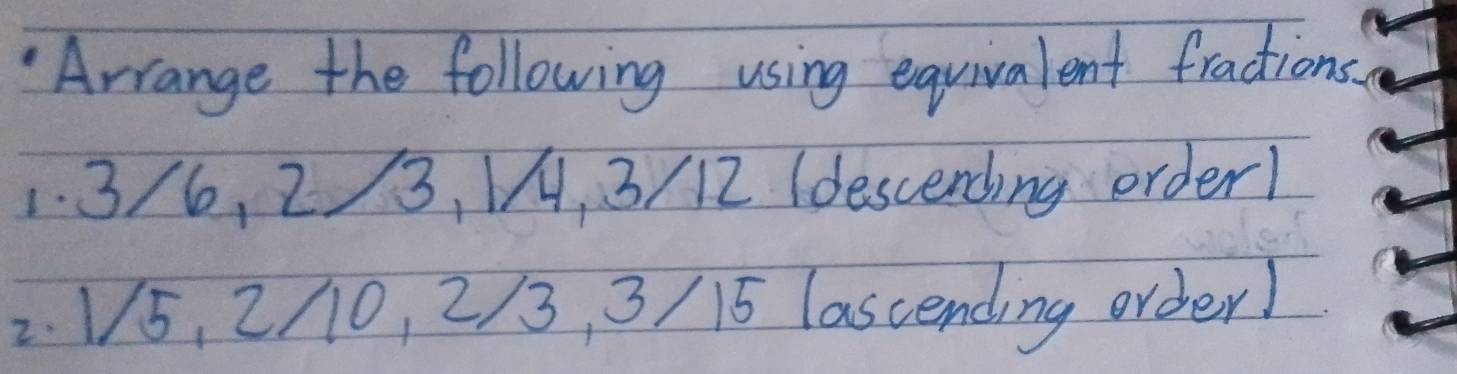 • Arrange the following using equivalent fractions.
1. 3/6, 2/3, 1/4, 3/12 (descending order)
2. 1/5, 2/10, 2/3, 3/15 (ascending order).